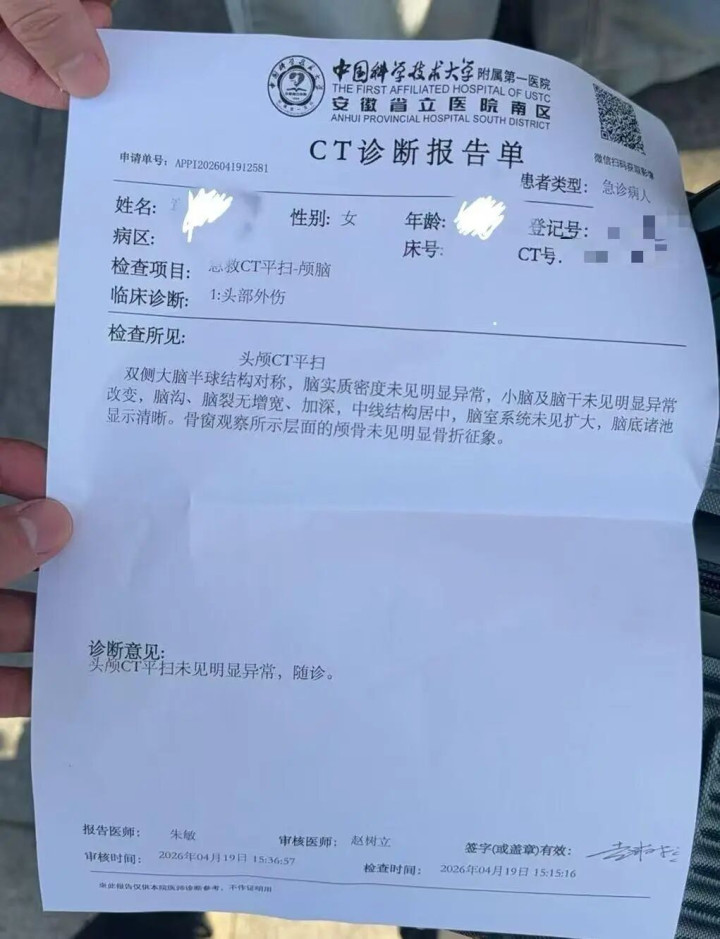 中国科学技术大学附属第一医院
THE FIRST AFFILIATED HOSPITAL OF USTC
安徽省立医院南区
ANHUI PROVINCIAL HOSPITAL SOUTH DISTRICT
微信扫码获取影像
CT诊断报告单
申请单号: APPI2026041912581
患者类型: 急诊病人
姓名: 性别: 女 年龄: 登记号:
病区: 床号: CT号.
检查项目: 急救CT平扫-颅脑
临床诊断: 1:头部外伤
检查所见:
头颅CT平扫
双侧大脑半球结构对称，脑实质密度未见明显异常，小脑及脑干未见明显异常
改变，脑沟、脑裂无增宽、加深，中线结构居中，脑室系统未见扩大，脑底诸池
显示清晰。骨窗观察所示层面的颅骨未见明显骨折征象。
诊断意见:
头颅CT平扫未见明显异常，随诊。
报告医师: 朱敏 审核医师: 赵树立 签字(或盖章)有效:
审核时间: 2026年04月19日 15:36:57 检查时间: 2026年04月19日 15:15:16
※此报告仅供本院医师诊断参考，不作证明用